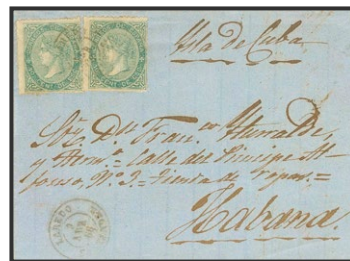 Isla de Cuba
Sres. Dn. Fran.co Iturralde,
y Herm.o = Calle del Principe Al
fonso, Nº 3. = tienda de ropas. =
Habana.
LAREDO